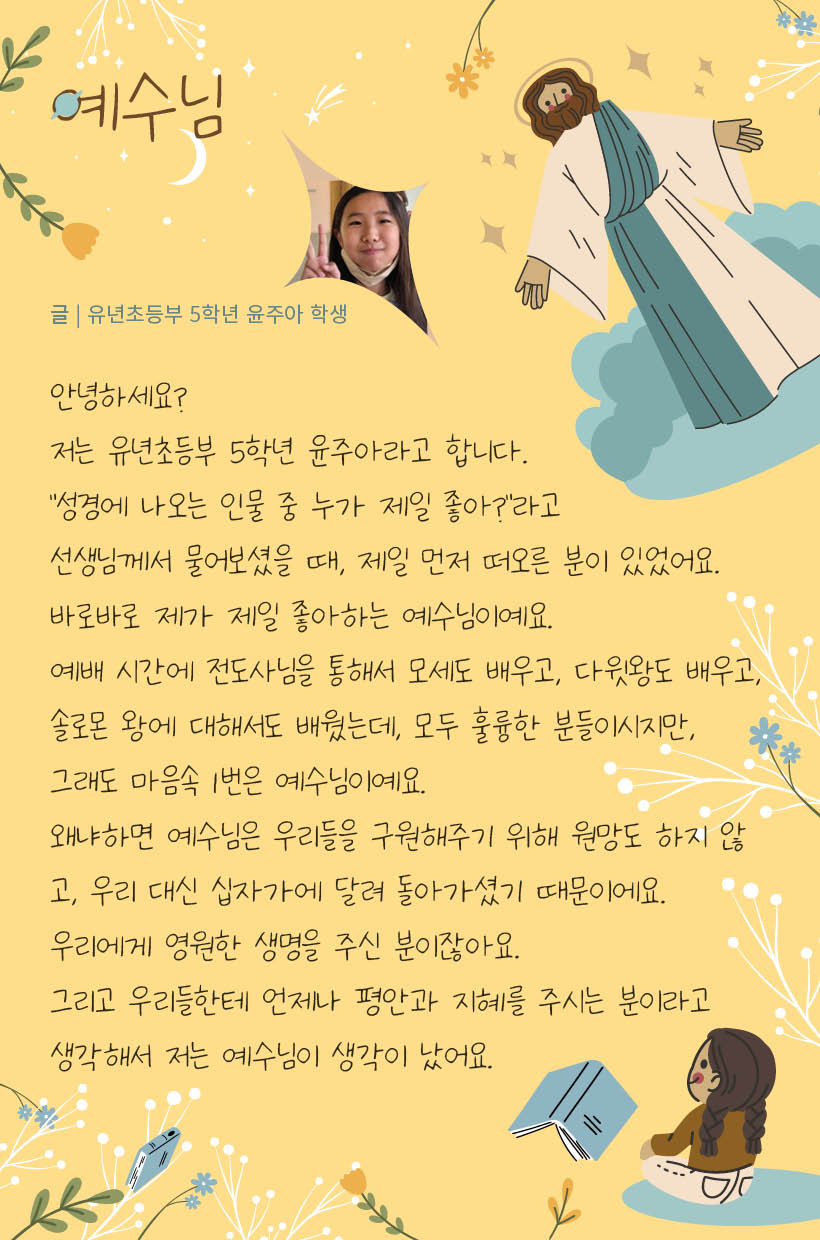 예수님
글 | 유년초등부 5학년 윤주아 학생
안녕하세요?
저는 유년초등부 5학년 윤주아라고 합니다.
"성경에 나오는 인물 중 누가 제일 좋아?"라고
선생님께서 물어보셨을 때, 제일 먼저 떠오른 분이 있었어요.
바로바로 제가 제일 좋아하는 예수님이예요.
예배 시간에 전도사님을 통해서 모세도 배우고, 다윗왕도 배우고,
솔로몬 왕에 대해서도 배웠는데, 모두 훌륭한 분들이시지만,
그래도 마음속 1번은 예수님이예요.
왜냐하면 예수님은 우리들을 구원해주기 위해 원망도 하지 않
고, 우리 대신 십자가에 달려 돌아가셨기 때문이에요.
우리에게 영원한 생명을 주신 분이잖아요.
그리고 우리들한테 언제나 평안과 지혜를 주시는 분이라고
생각해서 저는 예수님이 생각이 났어요.